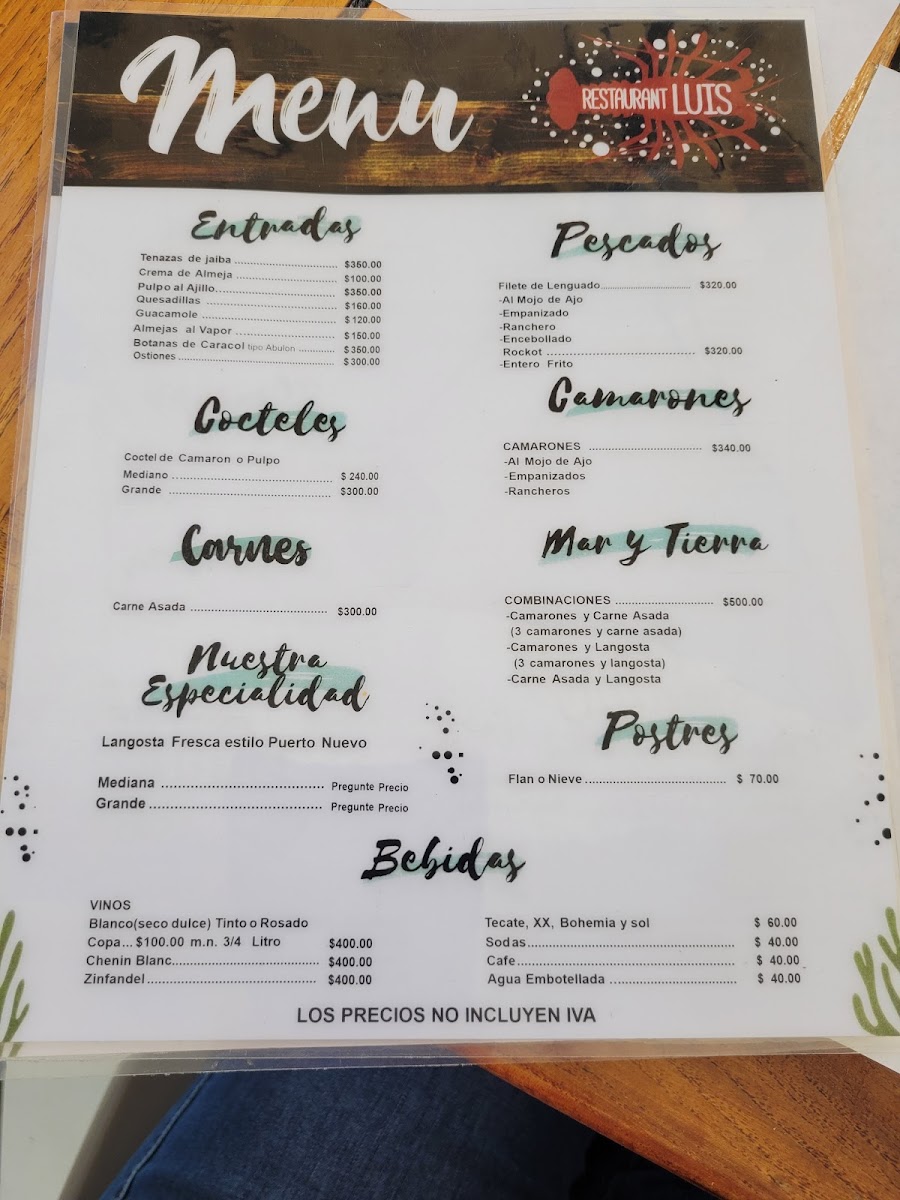 Menu
RESTAURANT LUIS
Entradas
Tenazas de jaiba ............................ $350.00
Crema de Almeja ............................ $100.00
Pulpo al Ajillo................................. $350.00
Quesadillas .................................... $160.00
Guacamole ..................................... $120.00
Almejas al Vapor ............................ $150.00
Botanas de Caracol tipo Abulon ........... $350.00
Ostiones ......................................... $300.00
Cocteles
Coctel de Camaron o Pulpo
Mediano ......................................... $ 240.00
Grande .......................................... $300.00
Carnes
Carne Asada .................................. $300.00
Nuestra
Especialidad
Langosta Fresca estilo Puerto Nuevo
Mediana ................................... Pregunte Precio
Grande ..................................... Pregunte Precio
Pescados
Filete de Lenguado......................... $320.00
-Al Mojo de Ajo
-Empanizado
-Ranchero
-Encebollado
Rockot ........................................ $320.00
-Entero Frito
Camarones
CAMARONES ............................... $340.00
-Al Mojo de Ajo
-Empanizados
-Rancheros
Mar y Tierra
COMBINACIONES ......................... $500.00
-Camarones y Carne Asada
(3 camarones y carne asada)
-Camarones y Langosta
(3 camarones y langosta)
-Carne Asada y Langosta
Postres
Flan o Nieve ................................... $ 70.00
Bebidas
VINOS
Blanco(seco dulce) Tinto o Rosado
Copa... $100.00 m.n. 3/4 Litro $400.00
Chenin Blanc.................................... $400.00
Zinfandel.......................................... $400.00
Tecate, XX, Bohemia y sol $ 60.00
Sodas................................................... $ 40.00
Cafe...................................................... $ 40.00
Agua Embotellada ............................... $ 40.00
LOS PRECIOS NO INCLUYEN IVA